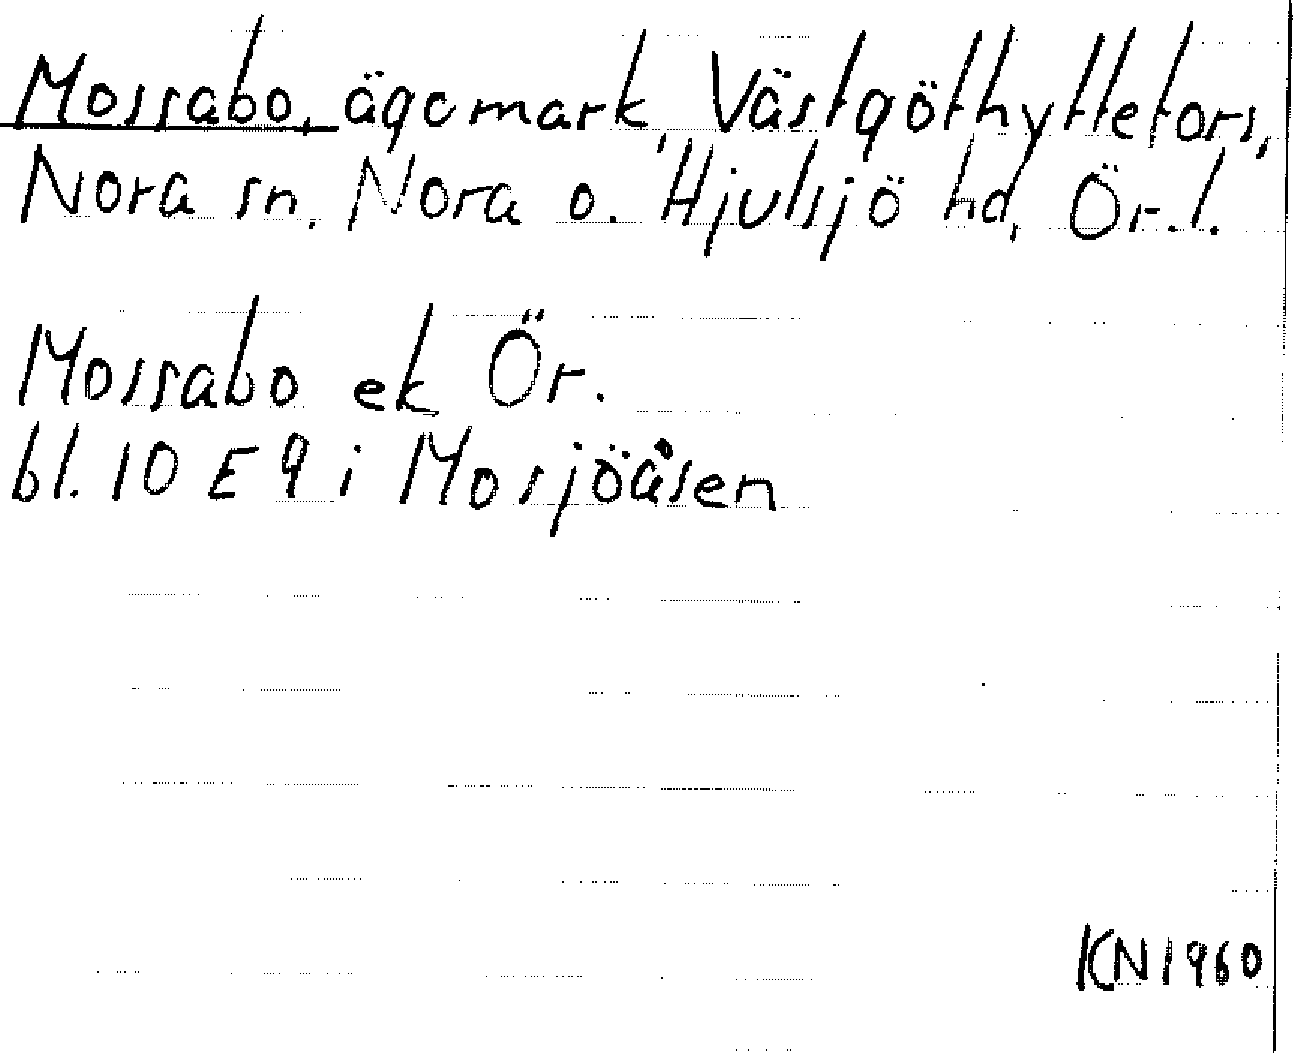 Mossabo, ägomark, Västgöthyttefors,
Nora sn. Nora o. Hjulsjö hd, Ör.l.
Mossabo ek Ör.
bl. 10 E 9 i Mosjöåsen
KN1960